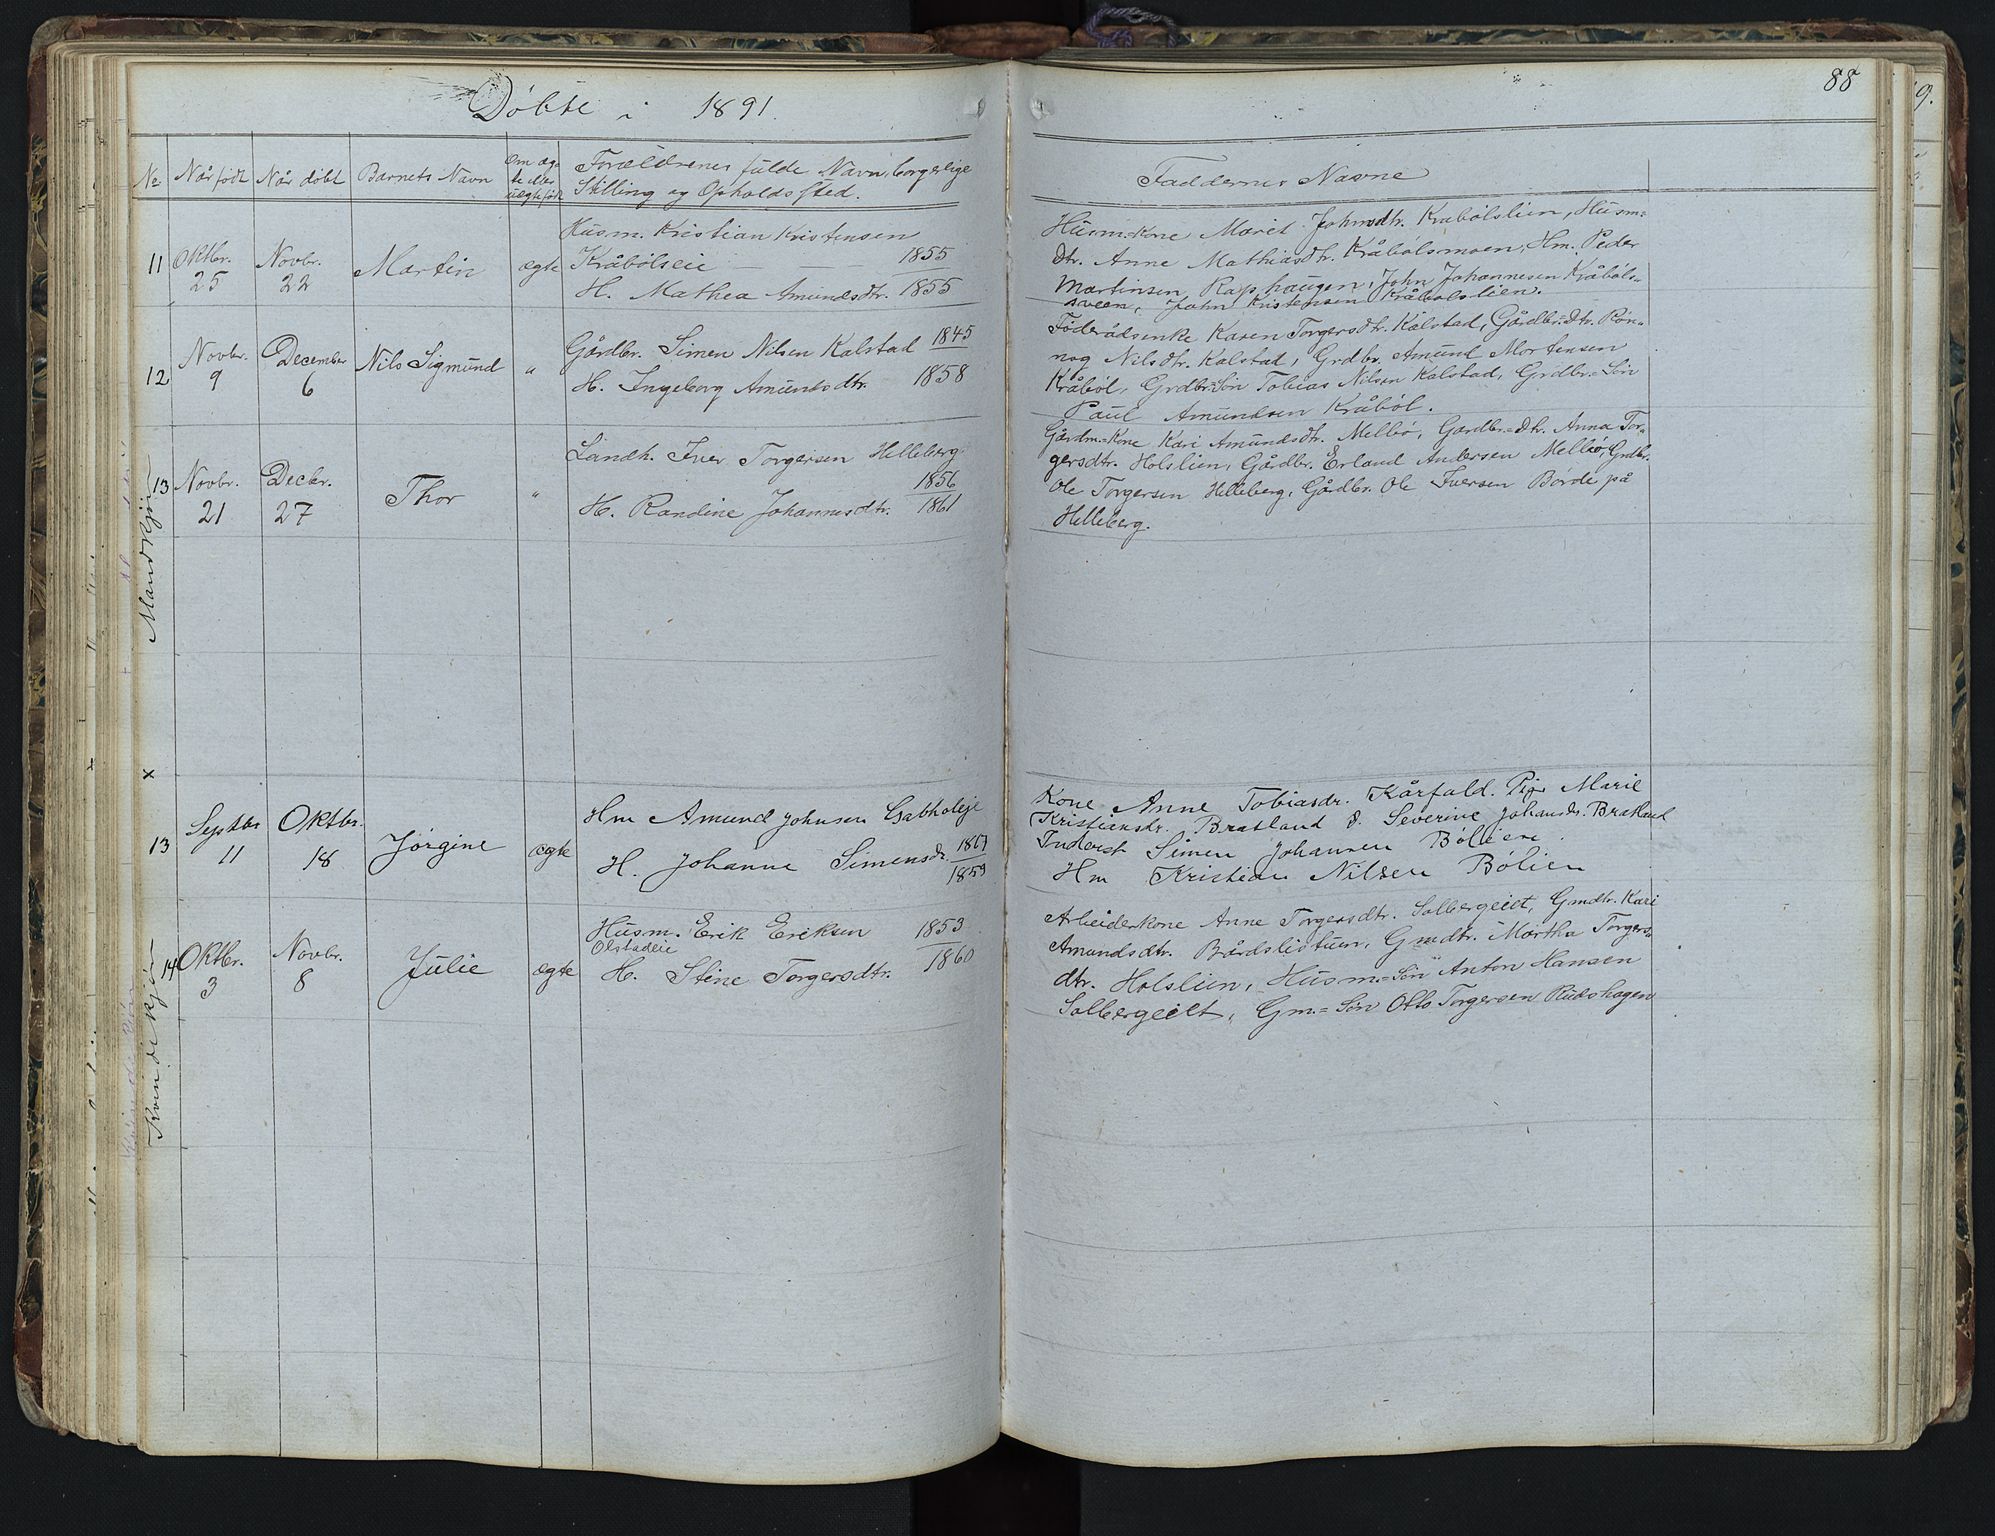 Døbte i 1891.
No
Når født
Når døbt
Barnets Navn
Om æg-
te eller
uægte født
Forældrenes fulde Navn, borgerlige
Stilling og Opholdssted.
Mandkjøn
11
Oktbr.
25
Novbr.
22
Martin
ægte
Husm. Kristian Kristensen
Kråbølseie 1855
H. Mathea Amundsdtr. 1855
12
Novbr.
9
December
6
Nils Sigmund
"
Gårdbr. Simen Nilsen Kalstad 1845
H. Ingeborg Amundsdtr. 1858
13
Novbr.
21
Decbr.
27
Thor
"
Landh. Iver Torgersen Helleberg
1856
H. Randine Johannesdtr. 1861
x
Kvindekjøn
13
Septbr
11
Oktbr.
18
Jørgine
ægte
Hm Amund Johnsen
H. Johanne Simensdr.
1859
14
Oktbr.
3
Novbr.
8
Julie
ægte
Husm. Erik Eriksen 1853
Olstadeie
H. Stine Torgersdtr. 1860
88
Faddernes Navne
Husm=kone Marit Johnsdtr. Kråbølslien, Husm=
dtr. Anne Mathiasdtr. Kråbølsmoen, Hm. Peder
Martinsen Rapshaugen, John Johannesen Kråbøls-
sveen, John Kristensen Kråbølslien.
Föderådsenke Karen Torgersdtr. Kalstad, Gårdbr=dtr. Røn-
nog Nilsdtr. Kalstad, Grdbr. Amund Mortensen
Kråbøl, Grdbr=Søn Tobias Nilsen Kalstad, Grdbr=Søn
Paul Amundsen Kråbøl.
Gårdm=Kone Kari Amundsdtr. Mellbø, Gardbr=dtr. Anna Tor-
gersdtr. Holslien, Gårdbr. Erland Andersen Mellbø, Grdbr.
Ole Torgersen Helleberg, Gårdbr. Ole Iversen Børde på
Helleberg.
Kone Anne Tobiasdr. Pige Marie
Kristiansdr. Bratland d. Severine Johansdr. Bratland
Inderst Simen Johansen
Hm Kristian Nilsen Bølien
Arbeiderkone Anne Torgersdtr. Solbergeiet, Gmdtr. Kari
Amundsdtr. Bårdslistuen, Gmdtr. Martha Torgers-
dtr. Holslien, Husm=Søn Anton Hansen
Solbergeiet, Gm.=Søn Otto Torgersen Rudshagen